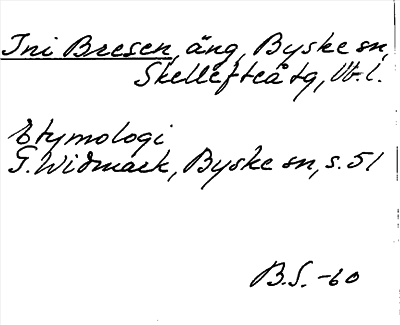 Ini Bresen, äng, Byske sn,
Skellefteå tg, Vb. l.
Etymologi
G. Widmark, Byske sn, s. 51
B.S. -60